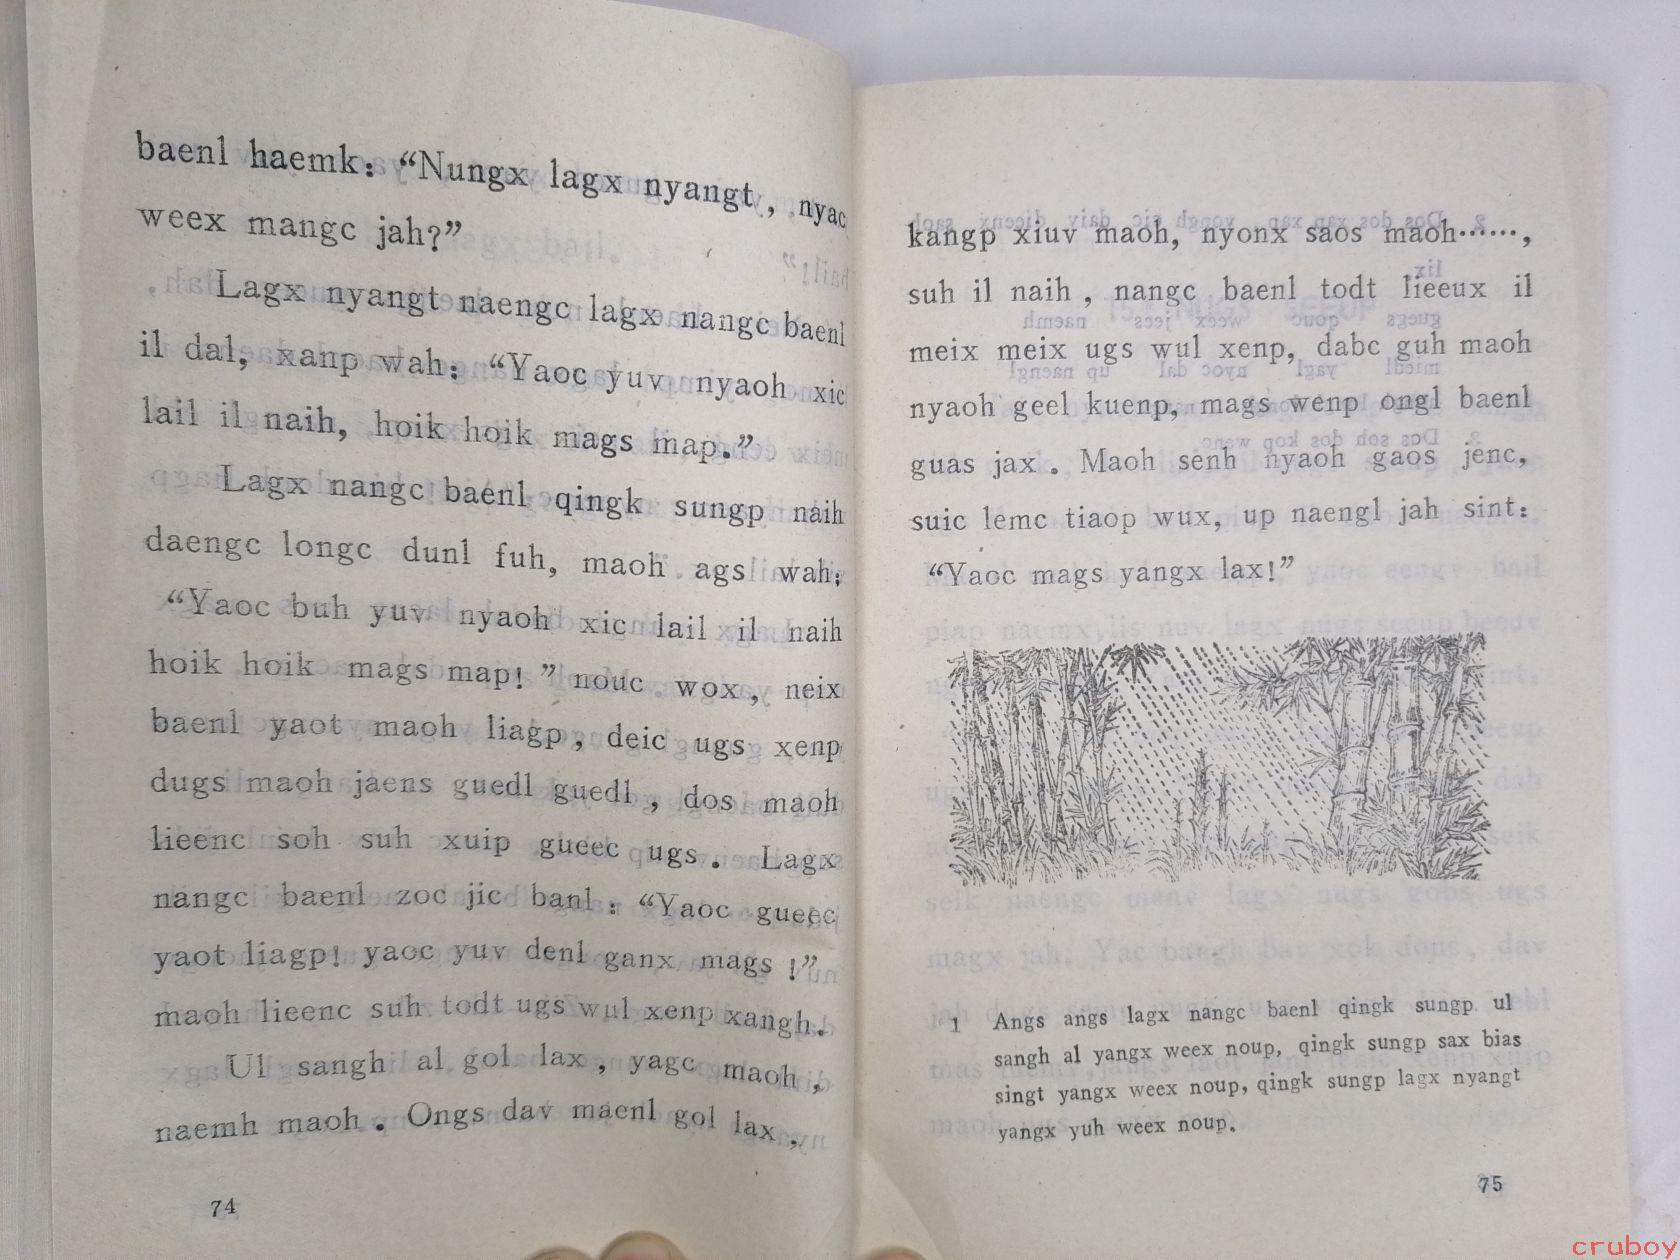 baenl haemk: “Nungx lagx nyangt, nyac
weex mangc jah?”
Lagx nyangt naengc lagx nangc baenl
il dal, xanp wah: “Yaoc yuv nyaoh xic
lail il naih, hoik hoik mags map.”
Lagx nangc baenl qingk sungp naih
daengc longc dunl fuh, maoh ags wah:
“Yaoc buh yuv nyaoh xic lail il naih
hoik hoik mags map! ” nouc wox, neix
baenl yaot maoh liagp, deic ugs xenp
dugs maoh jaens guedl guedl, dos maoh
lieenc soh suh xuip gueec ugs. Lagx
nangc baenl zoc jic banl: “Yaoc gueec
yaot liagp! yaoc yuv denl ganx mags !”
maoh lieenc suh todt ugs wul xenp xangh.
Ul sangh al gol lax, yagc maoh,
naemh maoh. Ongs dav maenl gol lax,
74
kangp xiuv maoh, nyonx saos maoh……,
suh il naih, nangc baenl todt lieeux il
meix meix ugs wul xenp, dabc guh maoh
nyaoh geel kuenp, mags wenp ongl baenl
guas jax. Maoh senh nyaoh gaos jenc,
suic lemc tiaop wux, up naengl jah sint:
“Yaoc mags yangx lax!”
1 Angs angs lagx nangc baenl qingk sungp ul
sangh al yangx weex noup, qingk sungp sax bias
singt yangx weex noup, qingk sungp lagx nyangt
yangx yuh weex noup.
75
cruboy